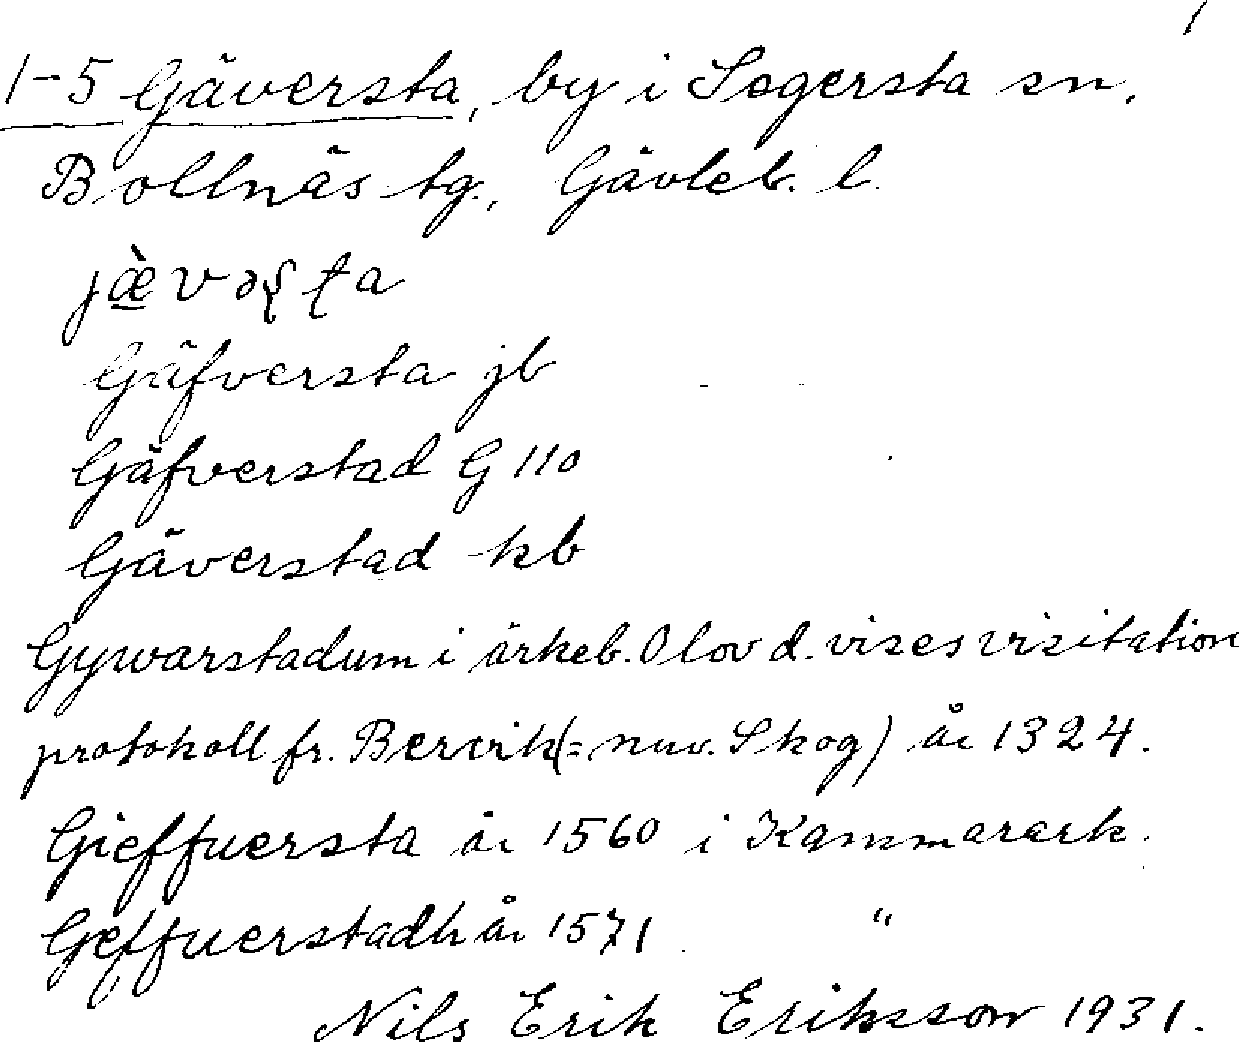 1
1-5 Gäversta, by i Segersta sn.
Bollnäs tg., Gävleb. l.
jæ̀vəʂʈa
Gäfversta jb
Gäfverstad G 110
Gäverstad kb
Gywarstadum i ärkeb. Olov d. vises visitation
protokoll fr. Bervik (= nuv. Skog) år 1324.
Gieffuersta år 1560 i Kammarark.
Geffuerstadh år 1571 "
Nils Erik Eriksson 1931.